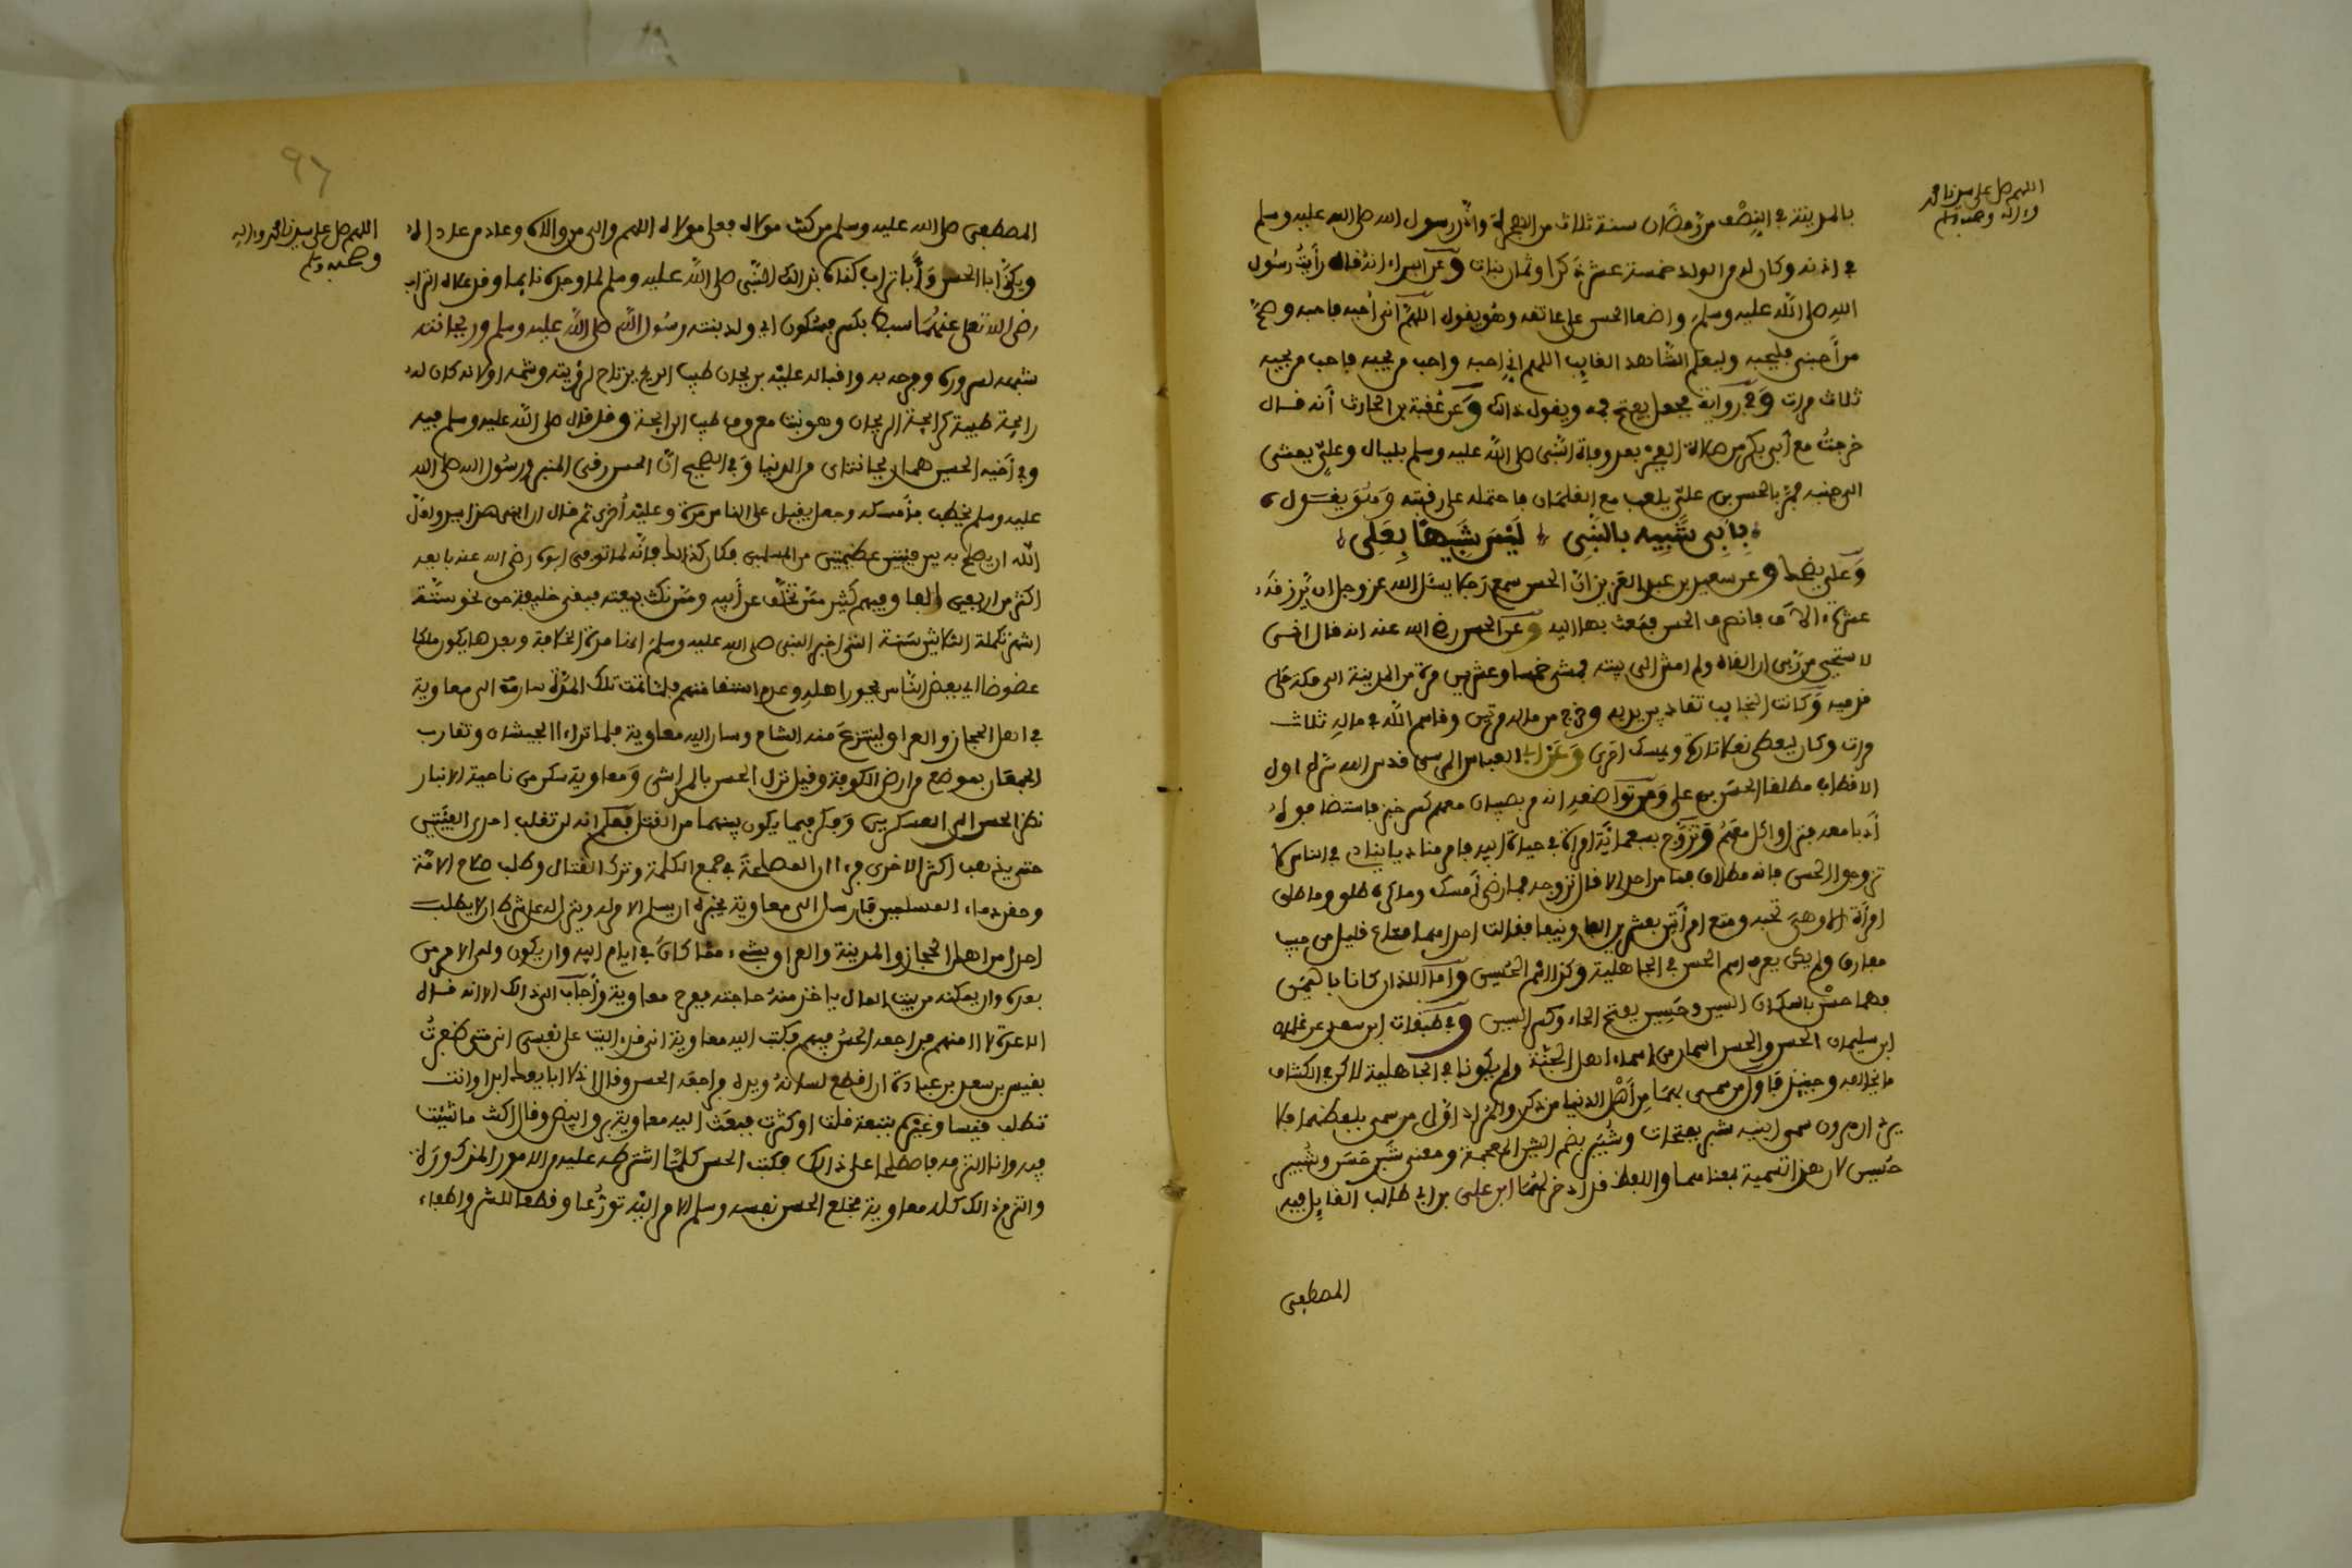 اللهم صل على سيدنا محمد
وءاله وصحبه وسلم
بالمدينة في النصف من رمضان سنة ثلاث من الهجرة واذن رسول الله صلى الله عليه وسلم
في اذنه وكان له من الولد خمسة عشر ذكرا وثمان بنات وعن البراء انه قال رأيت رسول
الله صلى الله عليه وسلم واضعا الحسن على عاتقه وهو يقول اللهم اني أحبه فاحبه وصح
من أحبني فليحبه وليعلم الشاهد الغايب اللهم اني احبه واحب من يحبه فاحب من يحبه
ثلاث مرات وفي رواية فجعل يفتح فمه ويقول ذالك وعن عقبة بن الحارث أنه قال
خرجت مع أبي بكر من صلاة بعد وفاة النبي صلى الله عليه وسلم بليال وعلي يمشي
الى جنبه فمر بالحسن بن علي يلعب مع الغلمان فاحتمله على رقبته وهو يقول
بابى شبيه بالنبي ليس شبيها بعلي
وعلي يضحك وعن سعيد بن عبد العزيز ان الحسن سمع رجلا يسئل الله عز وجل ان يرزقه
عشرة ءالاف فانصرف الحسن فبعث بها اليه وعن الحسن رضي الله عنه انه قال اني
لاستحيي من ربي ان القاه ولم امش الى بيته فمشى خمسا وعشرين مرة من المدينة الى مكة على
قدميه وكانت النجايب تقاد بين يديه وخرج من ماله مرتين وقاسم الله في ماله ثلاث
مرات وكان يعطي نعلا تارة ويمسك اخرى وعن ابي العباس المرسي قدس الله سره اول
الاقطاب مطلقا الحسن بن علي ومن تواضعه انه مر بصبيان معهم كسر خبز فاستضافوه
أدبا معه فنزل واكل معهم وتزوج بسبعماية امرأة في حياة ابيه فامر مناديا ينادي في الناس لا
تزوجوا الحسن فانه مطلاق فما من احد الا قال نزوجه فما رضي أمسك وما كره طلق وما طلق
امرأة الا وهي تحبه ومتع امرأتين بعشرين الفا فقالت احداهما متاع قليل من حبيب
مفارق ولم يكن يعرف اسم الحسن في الجاهلية وكذا اسم الحسين واما اللذان كانا باليمن
فهما حسن باسكان السين وحسين بفتح الحاء وكسر السين وفي طبقات ابن سعد عن عمران
ابن سليمان الحسن والحسين اسمان من اسماء اهل الجنة ولم يكونا في الجاهلية لاكن في الكشاف
ما يخالفه وحينئذ فاول من سمي بهما من أهل الدنيا من ذكر والمراد اول من سمي بلفظهما فلا
يرد ان هرون سمى ابنيه شبر بفتحات وشبير بضم الشين المعجمة ومعنى شبر حسن وشبير
حسين لان هذا تسمية بمعناهما واللفظ ابن علي بن ابي طالب القايل فيه
المصطفى
٩٦
اللهم صل على سيدنا محمد وءاله
وصحبه وسلم
المصطفى صلى الله عليه وسلم من كنت مولاه فعلي مولاه اللهم والي من والاه وعاد من عاداه
ويكنى ابا الحسن وأبا تراب كناه بذالك النبي صلى الله عليه وسلم لما وجده نايما وقد علاه التراب
رضي الله تعلى عنهما سبط بكسر فسكون اي ولد بنت رسول الله صلى الله عليه وسلم وريحانته
شبهه لسروره وفرحه به واقباله عليه بريحان طيب الريح يرتاح لرؤيته وشمه اولانه كان له
رايحة طيبة كرايحة الريحان وهو نبت معروف طيب الرايحة وقد قال صلى الله عليه وسلم فيه
وفي أخيه الحسين هما ريحانتاي من الدنيا وفي الصحيح ان الحسن رقى المنبر ورسول الله صلى الله
عليه وسلم يخطب فأمسكه وجعل يقبل على الناس مرة وعليه أخرى ثم قال ان ابني هذا سيد ولعل
الله ان يصلح به بين فيتين عظيمتين من المسلمين فكان كذالك فانه لما توفي ابوه رضي الله عنه بايعه
اكثر من اربعين الفا وفيهم كثير ممن تخلف عن أبيه وممن نكث بيعته فبقي خليفة نحو ستة
اشهر تكملة الثلاثين سنة التي اخبر النبي صلى الله عليه وسلم انها مدة الخلافة وبعدها يكون ملكا
عضوضا اي يعض الناس بجور اهله وعدم استقامتهم فلما تمت تلك المدة سار الى معاوية
في اهل الحجاز والعراق لينتزع منه الشام وسار اليه معاوية فلما تراءا الجيشان وتقارب
الجمعان بموضع من ارض الكوفة وقيل نزل الحسن بالمداين ومعاوية بمسكن من ناحية الانبار
نظر الحسن الى العسكرين وفكر فيما يكون بينهما من القتل فعلم انه لن تغلب احدى الفيتين
حتى يذهب اكثر الاخرى فرءا ان المصلحة في جمع الكلمة وترك القتال وطلب صلاح الامة
وحقن دماء المسلمين فارسل الى معاوية يخبره ان يسلم الامر له وينزل له على شرط ان لا يطلب
احدا من اهل الحجاز والمدينة والعراق بشيء مما كان في ايام ابيه وان يكون ولي الامر من
بعده وان يمكنه من بيت المال ياخذ منه حاجته ففرح معاوية وأجاب الى ذالك الا انه قال
الا عشرة لا اءامنهم فراجعه الحسن فيهم فكتب اليه معاوية اني قد ءاليت على نفسي اني متى ظفرت
بقيس بن سعد بن عبادة ان اقطع لسانه ويده فراجعه الحسن وقال اني لا ابايعك ابدا وانت
تطلب قيسا وغيره بتبعة قلت او كثرت فبعث اليه معاوية برق ابيض وقال اكتب ما شيت
فيه وانا التزمه فاصطلحا على ذالك فكتب الحسن كلما اشترطه عليه من الامور المذكورة
والتزم ذالك كله معاوية فخلع الحسن نفسه وسلم الامر اليه تورعا وقطعا للشر واطفاء